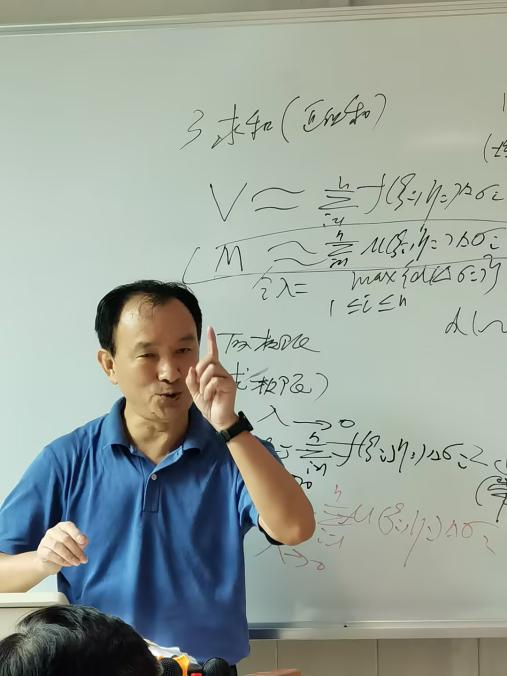 3. 求和(近似和)
V ≈ Σ_{i=1}^{n} f(ξ_i, η_i)Δσ_i
M ≈ Σ_{i=1}^{n} μ(ξ_i, η_i)Δσ_i
记 λ = max{d(Δσ_i)}
1≤i≤n
d(
取极限
求极限)
λ→0
Σ_{i=1}^{n} f(ξ_i, η_i)Δσ_i
Σ_{i=1}^{n} μ(ξ_i, η_i)Δσ_i
λ→0